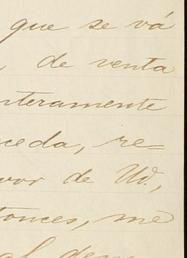 que se vá
de venta
nteramente
ceda, re-
vor de Ud.,
tonces, me